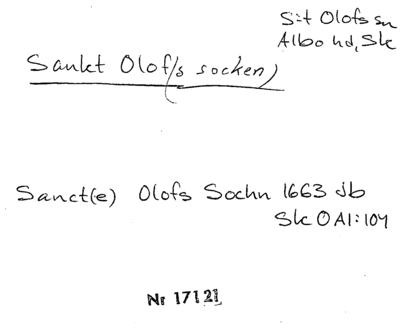 S:t Olofs sn
Albo hd, Sk
Sankt Olof(s socken)
Sanct(e) Olofs Sochn 1663 Jb
Sk O Al:104
Nr 17121